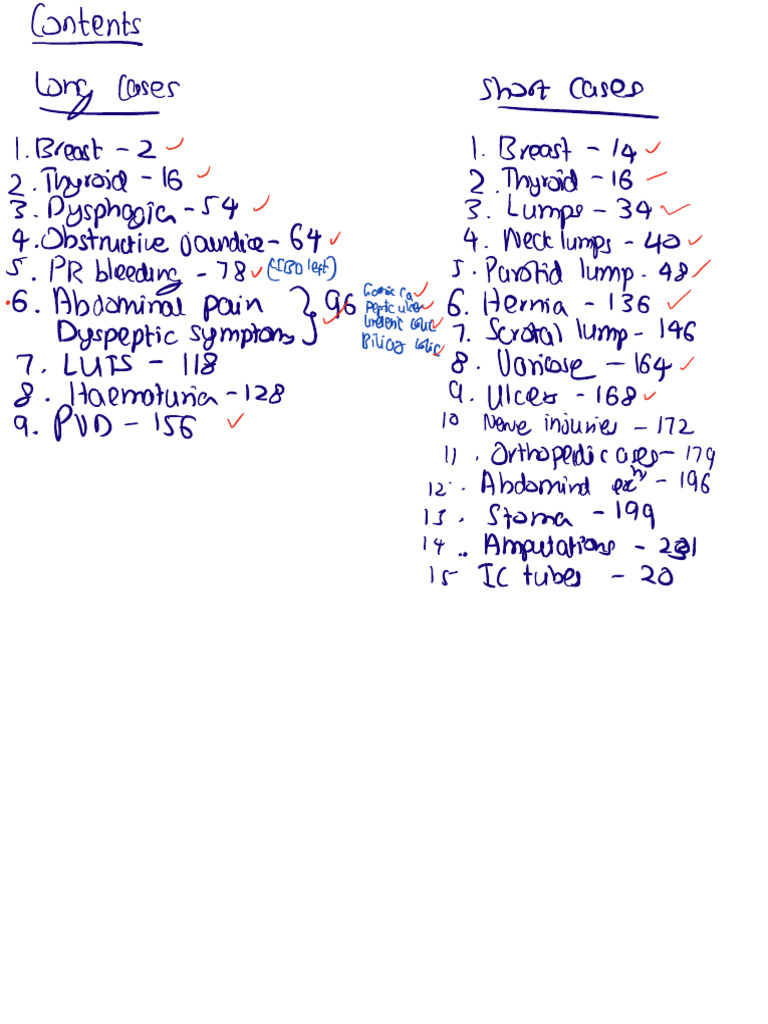 Contents
Long Cases
1. Breast - 2 ✓
2. Thyroid - 16 ✓
3. Dysphagia - 54 ✓
4. Obstructive jaundice - 64 ✓
5. PR bleeding - 78 ✓ (IBD left)
6. Abdominal pain } 96
Dyspeptic symptoms ✓
Gastric ca ✓
Peptic ulcer ✓
Ureteric colic ✓
Biliary colic ✓
7. LUTS - 118
8. Haematuria - 128
9. PVD - 156 ✓
Short Cases
1. Breast - 14 ✓
2. Thyroid - 16 ✓
3. Lumps - 34 ✓
4. Neck lumps - 40 ✓
5. Parotid lump - 48 ✓
6. Hernia - 136 ✓
7. Scrotal lump - 146
8. Varicose - 164 ✓
9. Ulcer - 168 ✓
10 Nerve injuries - 172
11. Orthopedic cases - 179
12. Abdominal exn - 196
13. Stoma - 199
14.. Amputations -
15 IC tubes - 20